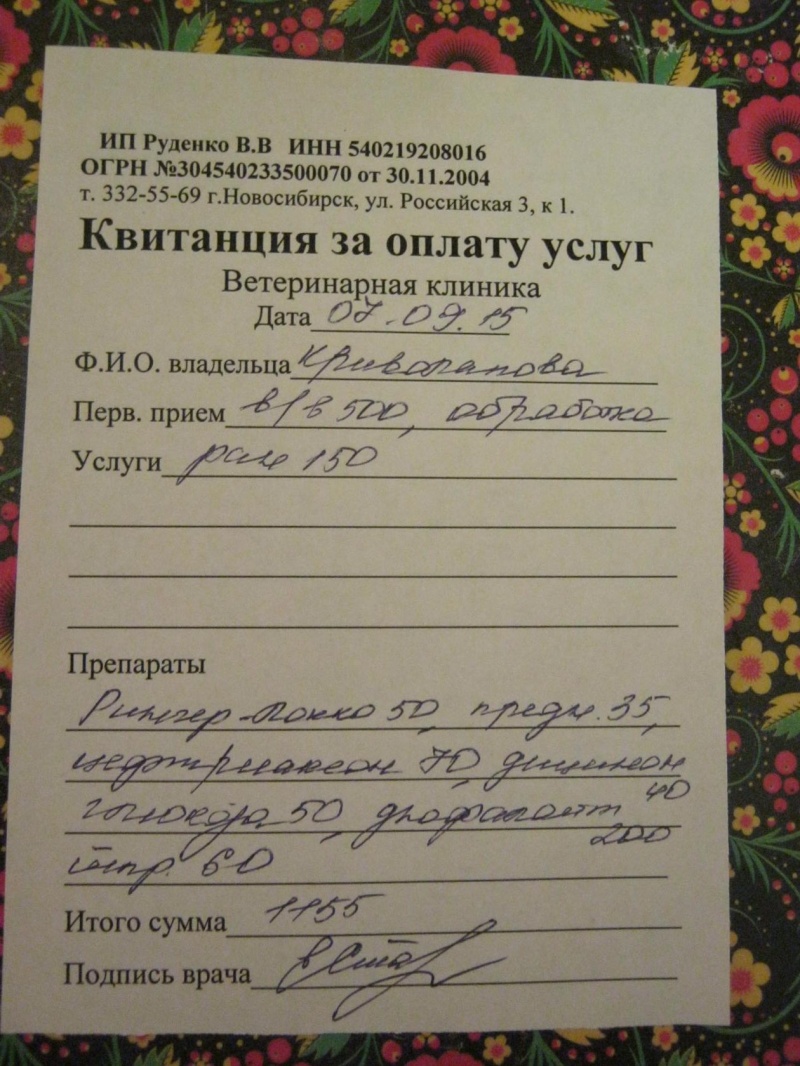 ИП Руденко В.В ИНН 540219208016
ОГРН №304540233500070 от 30.11.2004
т. 332-55-69 г.Новосибирск, ул. Российская 3, к 1.
Квитанция за оплату услуг
Ветеринарная клиника
Дата 07.09.15
Ф.И.О. владельца Криволапова
Перв. прием в/в 500, обработка
Услуги ран 150
Препараты
Рингер-Локка 50, предн. 35,
цефтриаксон 70, дицинон 40
глюкоза 50, 200
60
Итого сумма 1155
Подпись врача